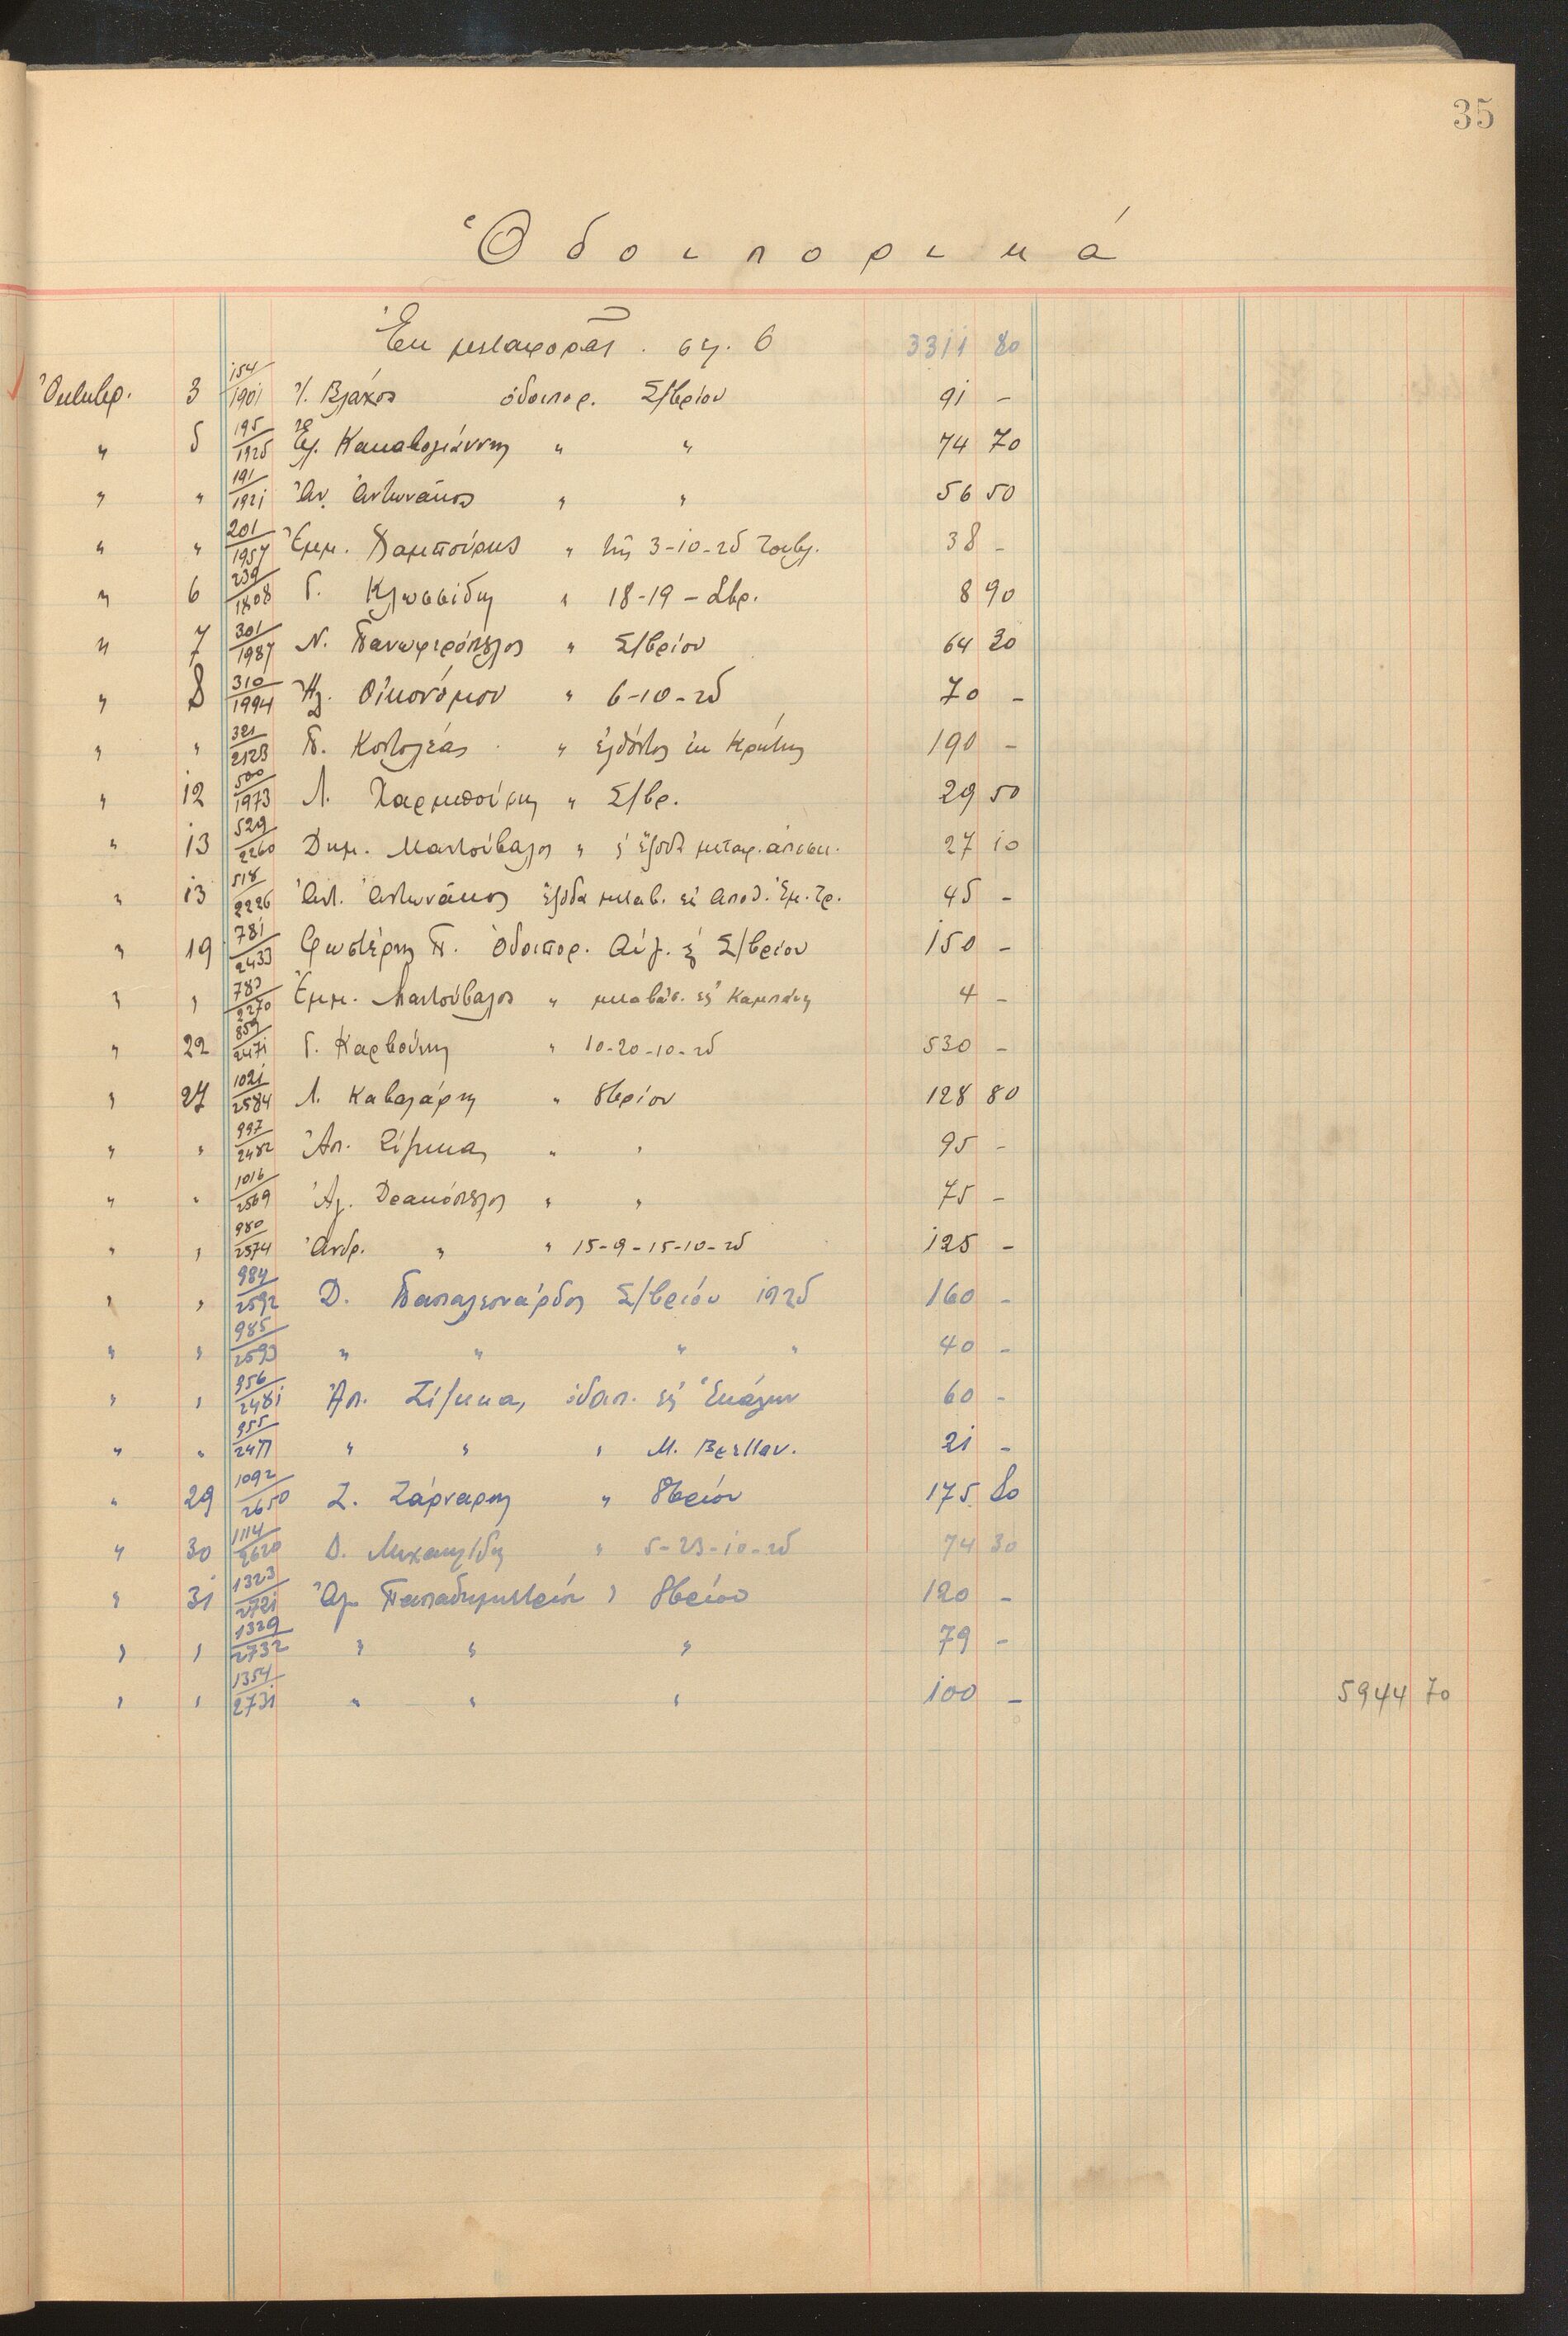 35
Ὁδοιπορικά
Ἐκ μεταφορᾶς . σελ. 6 3311 80
Ὀκτωβρ. 3 154/1901 Ἰ. Βλάχος ὁδοιπορ. Σ/βρίου 91 -
" 5 195/1925 Κακαβογιάννης " " 74 70
" " 191/1921 Ἀν. Ἀντωνάκος " " 56 50
" " 201/1957 Ἐμμ. " τῆς 3-10-25 38 -
" 6 239/1808 Γ. Κλωσσίδης " 18-19-8βρ. 8 90
" 7 301/1987 Ν. Πανωφερόπουλος " Σ/βρίου 64 30
" 8 310/1994 Ἠλ. Οἰκονόμου " 6-10-25 70 -
" " 321/2123 Π. Κοντολέας " ἐλθόντος ἐκ Κρήτης 190 -
" 12 500/1973 Λ. Χαρμπούρης " Σ/βρ. 29 50
" 13 529/2260 Δημ. Μαντούβαλος " ἔξοδα μεταφ. ἀποσκ. 27 10
" 13 518/2226 Ἀντ. Ἀντωνάκος ἔξοδα μεταβ. εἰς Ἀποθ. Ἐμ. Τρ. 45 -
" 19 781/2433 Φωστέρης Π. Ὁδοιπορ. Αὐγ. ἕως Σ/βρίου 150 -
" " 783/2270 Ἐμμ. Μαντούβαλος " μεταβάσ. εἰς Καμπάνη 4 -
" 22 859/2471 Γ. Καρβούνης " 10-20-10-25 530 -
" 27 1021/2584 Λ. Καβαλάρης " 8βρίου 128 80
" " 997/2482 Ἀπ. Ζίγκκας " " 95 -
" " 1016/2569 Ἀλ. Δρακόπουλος " " 75 -
" " 980/2574 Ἀνδρ. " " 15-9-15-10-25 125 -
" " 984/2592 Δ. Παπαλεονάρδος Σ/βρίου 1925 160 -
" " 985/2593 " " " " 40 -
" " 956/2481 Ἀπ. Ζίγκκας ὁδοιπ. εἰς Ἑκάλην 60 -
" " 955/2477 " " " Μ. Βρετταν. 21 -
" 29 1092/2650 Ζ. Ζάρναρης " 8βρίου 175 80
" 30 1114/2620 Δ. Μιχαηλίδης " 5-23-10-25 74 30
" 31 1323/2721 Ἀλ. Παπαδημητρίου " 8βρίου 120 -
" " 1329/2732 " " " 79 -
" " 1354/2731 " " " 100 - 5944 70